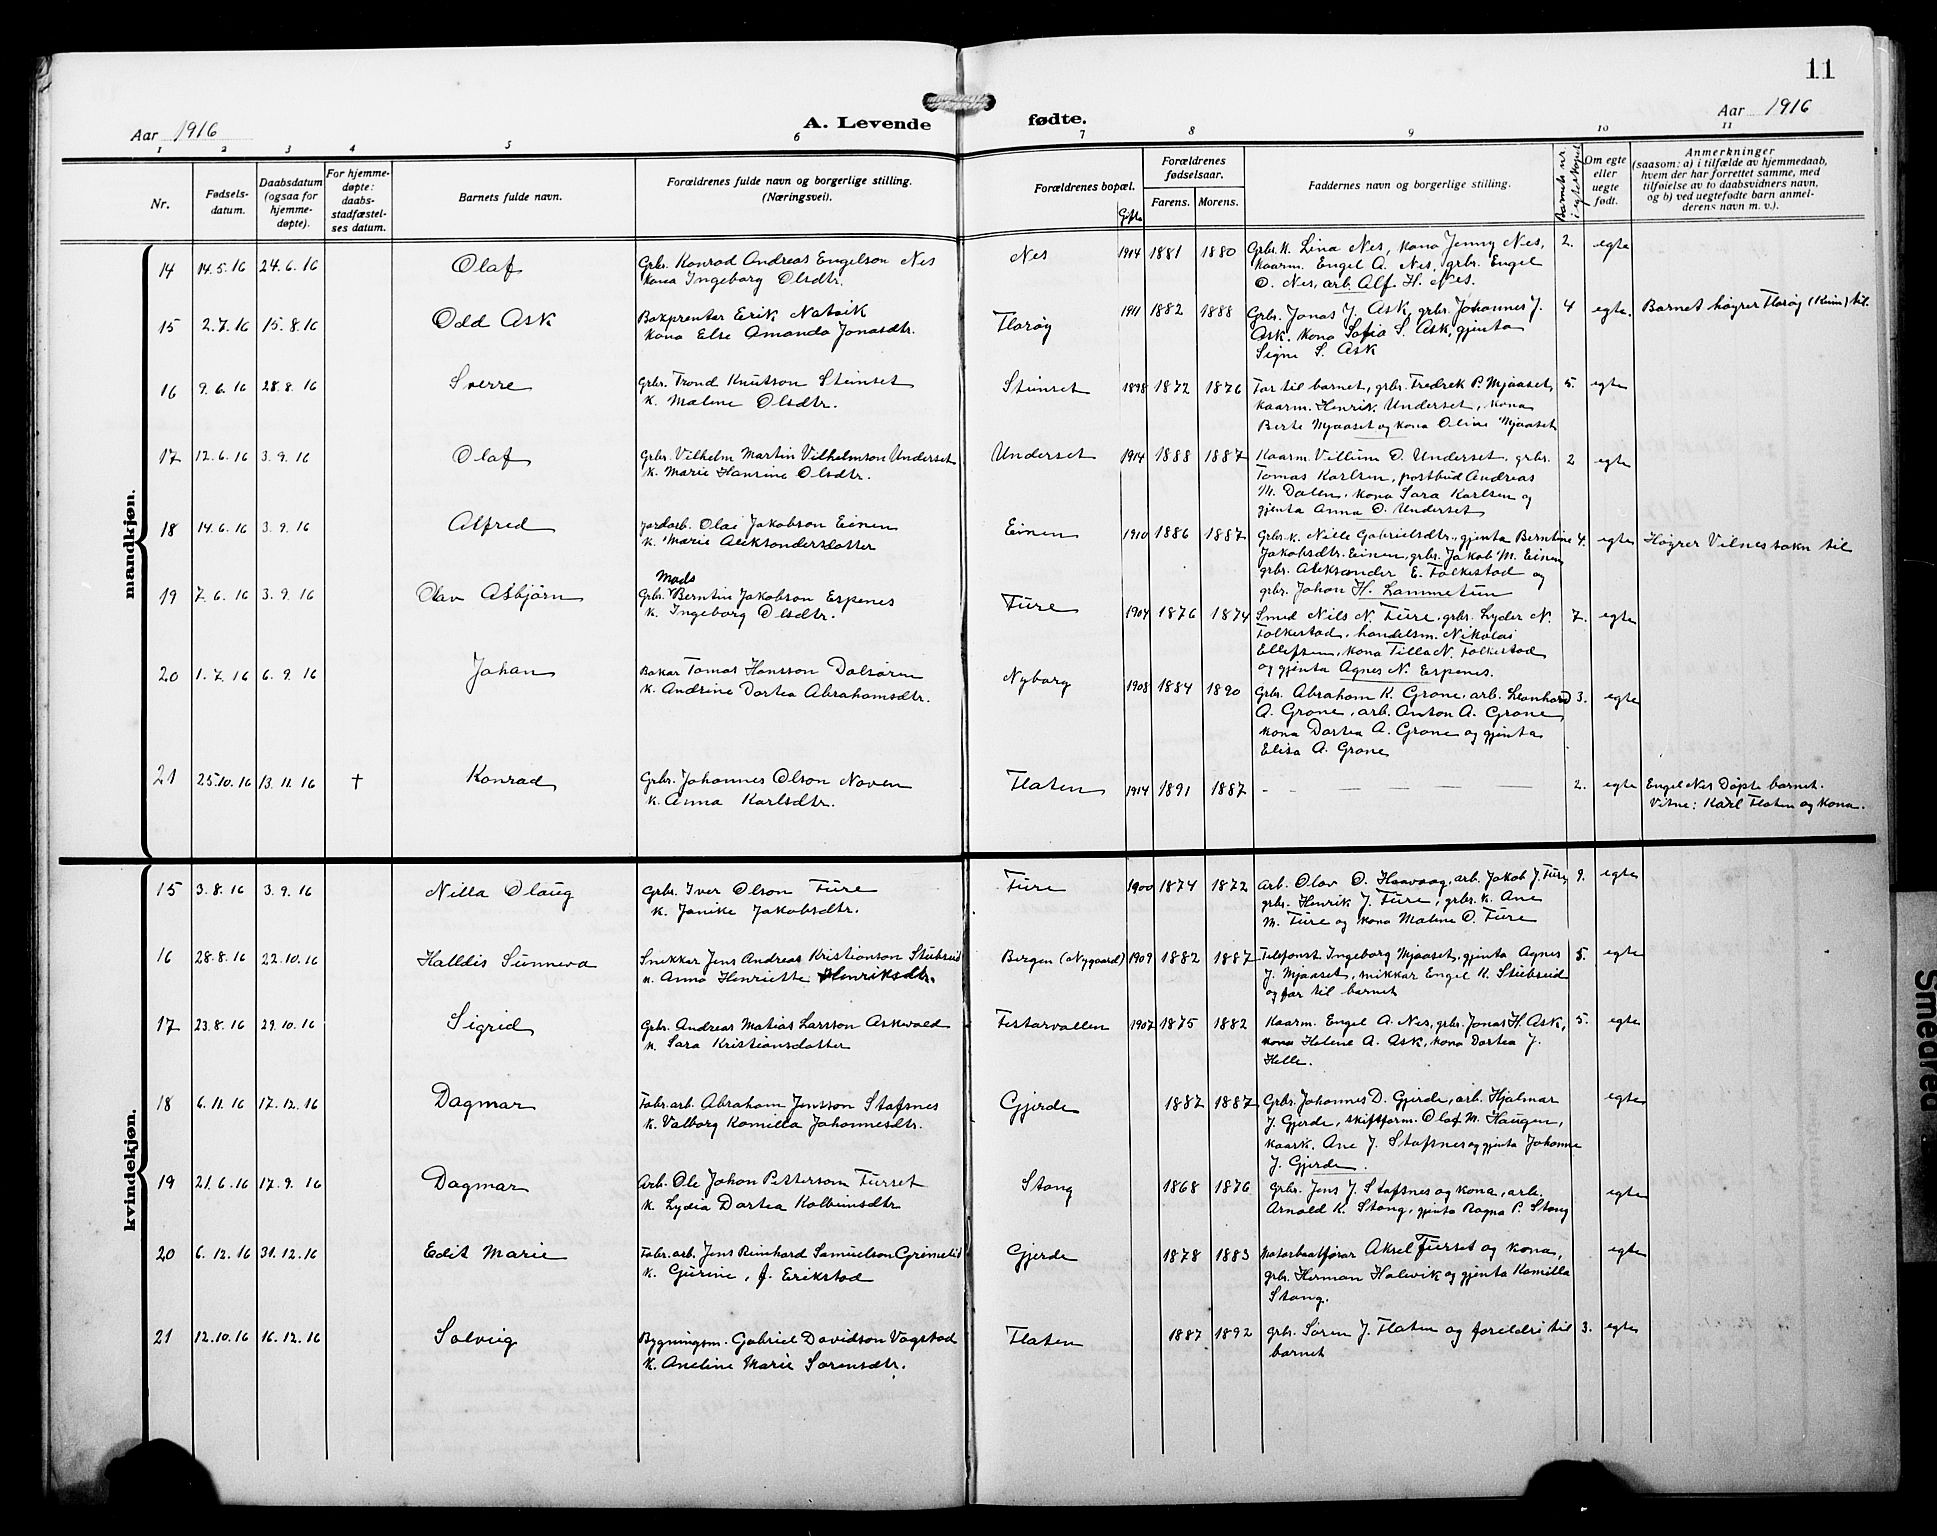 11
Aar 1916 A. Levende fødte. Aar 1916
1 2 3 4 5 6 7 8 9 10 11
Nr.
Fødsels-
datum.
Daabsdatum
(ogsaa for
hjemme-
døpte).
For hjemme-
døpte:
daabs-
stadfæstel-
ses datum.
Barnets fulde navn.
Forældrenes fulde navn og borgerlige stilling.
(Næringsvei).
Forældrenes bopæl.
Gifte
Forældrenes
fødselsaar.
Farens. Morens.
Faddernes navn og borgerlige stilling.
Barnets nr.
i egteskapet
Om egte
eller
uegte
født.
Anmerkninger
(saasom: a) i tilfælde av hjemmedaab,
hvem der har forrettet samme, med
tilføielse av to daabsvidners navn,
og b) ved uegtefødte barn anmel-
derens navn m. v.).
mandkjøn.
14 14.5.16 24.6.16 Olaf
Grbr. Konrad Andreas Engelson Nes
Kona Ingeborg Olsdtr.
Nes 1914 1881 1880
Grbr.k. Lina Nes, kona Jenny Nes,
kaarm. Engel A. Nes, grbr. Engel
O. Nes, arb. Alf H. Nes.
2. egte
15 2.7.16 15.8.16 Odd Ask
Bokprentar Erik Natvik
Kona Else Amanda Jonasdtr.
Florøy 1911 1882 1888
Grbr. Jonas J. Ask, grbr. Johannes J.
Ask, kona Sofia S. Ask, gjenta
Signe S. Ask
4 egte. Barnet høyrer Florøy (Kinn) til.
16 9.6.16 28.8.16 Sverre
Grbr. Trond Knutson Steinset
k. Malene Olsdtr.
Steinset 1898 1872 1876
Far til barnet, grbr. Fredrek P. Mjaaset,
kaarm. Henrik Underset, kona
Berte Mjaaset og kona Oline Mjaaset
5. egte
17 12.6.16 3.9.16 Olaf
Grbr. Vilhelm Martin Vilhelmson Underset
k. Marie Hansine Olsdtr.
Underset 1914 1888 1887
Kaarm. Villum O. Underset, grbr.
Tomas Karlsen, postbud Andreas
M. Dalen, kona Sara Karlsen og
gjenta Anna O. Underset
2 egte
18 14.6.16 3.9.16 Alfred
Jordarb. Olai Jakobson Einen
k. Marie Aleksandersdotter
Einen 1910 1886 1887
Grbr.k. Nille Gabrielsdtr., gjenta Berntine
Jakobsdtr. Einen, grbr. Jakob M. Einen
grbr. Aleksander E. Folkestad og
grbr. Johan H. Lammetun
4. egte Høyrer Vilnes sokn til
19 7.6.16 3.9.16 Olav Asbjørn
Mads
Grbr. Berntin Jakobson Espenes
k. Ingeborg Olsdtr.
Fure 1904 1876 1874
Smed Nils N. Fure, grbr. Lyder N.
Folkestad, handelsm. Nikolai
Ellefsen, kona Tilla N. Folkestad
og gjenta Agnes N. Espenes.
7. egte
20 1.7.16 6.9.16 Johan
Bakar Tomas Hansson Dalsøren
k. Andrine Dortea Abrahamsdtr.
Nyborg 1908 1884 1890
Grbr. Abraham K. Grone, arb. Leonhard
A. Grone, arb. Anton A. Grone,
kona Dortea A. Grone og gjenta
Elisa A. Grone
3. egte
21 25.10.16 13.11.16 † Konrad
Grbr. Johannes Olson Naven
k. Anna Karlsdtr.
Flaten 1914 1891 1887
– – – – – –
2. egte Engel Nes Døpte barnet.
Vitne: Karl Flaten og kona.
kvindekjøn.
15 3.8.16 3.9.16 Nilla Olaug
Grbr. Iver Olson Fure
k. Janike Jakobsdtr.
Fure 1900 1874 1872
Arb. Olav O. Haavaag, arb. Jakob J. Fure
grbr. Henrik J. Fure, grbr.k. Ane
M. Fure og kona Malene O. Fure
9. egte
16 28.8.16 22.10.16 Halldis Sunneva
Snekkar Jens Andreas Kristianson Stubseid
k. Anna Henriette Henriksdtr.
Bergen (Nygaard) 1909 1882 1887
Telefonst Ingeborg Mjaaset, gjenta Agnes
J. Mjaaset, snikkar Engel K. Stubseid
og far til barnet
5. egte
17 23.8.16 29.10.16 Sigrid
Grbr. Andreas Matias Larsson Askvold
k. Sara Kristiansdotter
Festarvallen 1907 1875 1882
Kaarm. Engel A. Nes, grbr. Jonas H. Ask,
kona Helene A. Ask, kona Dortea J.
Helle.
5. egte
18 6.11.16 17.12.16 Dagmar
Fabr.arb. Abraham Jensson Stafsnes
k. Valborg Kamilla Johannesdtr.
Gjerde 1887 1887
Grbr. Johannes D. Gjerde, arb. Hjalmar
J. Gjerde, skiftform. Olaf M. Haugen,
kaark. Ane J. Stafsnes og gjenta Johanne
J. Gjerde.
egte
19 21.6.16 17.9.16 Dagmar
Arb. Ole Johan Petterson Furset
k. Lydia Dortea Kolbeinsdtr.
Stang 1868 1876
Grbr. Jens J. Stafsnes og kona, arb.
Arnold K. Stang, gjenta Ragna P. Stang
egte
20 6.12.16 31.12.16 Edit Marie
Fabr.arb. Jens Reinhard Samuelson Grimelid
k. Gurine, f. Erikstad
Gjerde 1878 1883
Motorbaatførar Aksel Furset og kona,
grbr. Herman Halvik og gjenta Kamilla
Stang.
egte
21 12.10.16 16.12.16 Solveig
Bygningsm. Gabriel Davidson Vagstad
k. Aneline Marie Sørensdtr.
Flaten 1887 1892
grbr. Søren J. Flaten og foreldri til
barnet
3. egte
Smedred